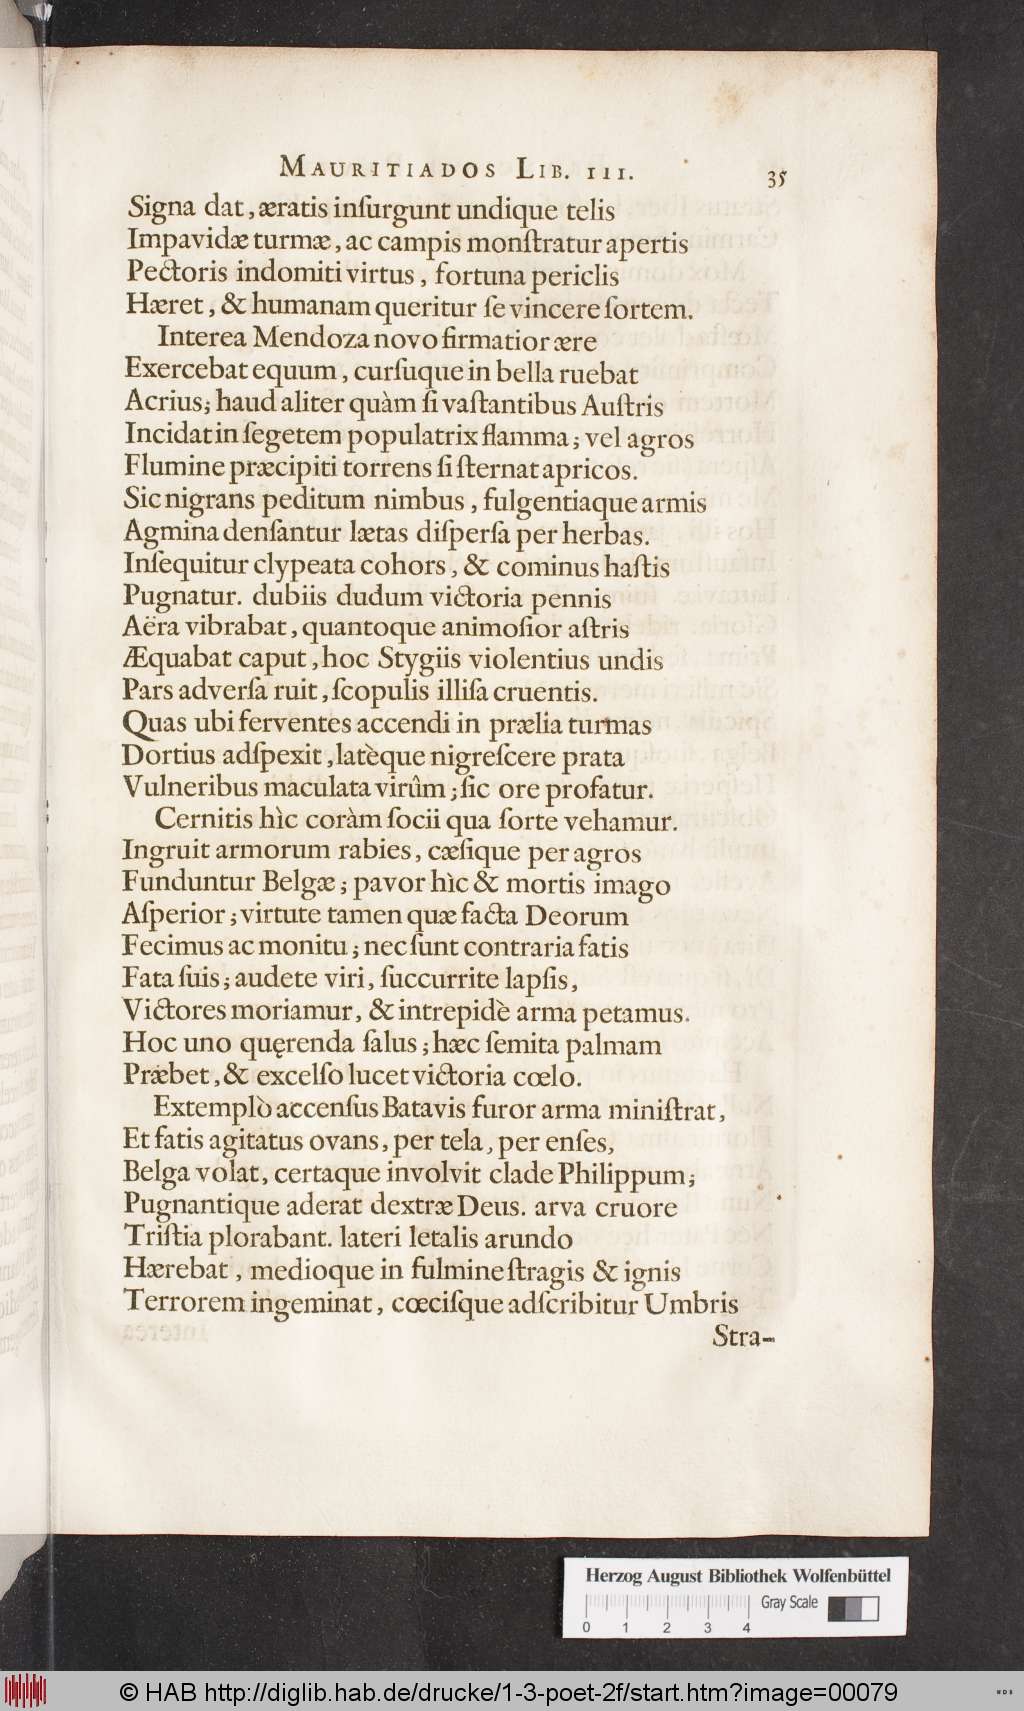 MAURITIADOS LIB. III. 35
Signa dat, æratis inſurgunt undique telis
Impavidæ turmæ, ac campis monſtratur apertis
Pectoris indomiti virtus, fortuna periclis
Hæret, & humanam queritur ſe vincere ſortem.
Interea Mendoza novo firmatior ære
Exercebat equum, curſuque in bella ruebat
Acrius; haud aliter quàm ſi vaſtantibus Auſtris
Incidat in ſegetem populatrix flamma; vel agros
Flumine præcipiti torrens ſi ſternat apricos.
Sic nigrans peditum nimbus, fulgentiaque armis
Agmina denſantur lætas diſperſa per herbas.
Inſequitur clypeata cohors, & cominus haſtis
Pugnatur. dubiis dudum victoria pennis
Aëra vibrabat, quantoque animoſior aſtris
Æquabat caput, hoc Stygiis violentius undis
Pars adverſa ruit, ſcopulis illiſa cruentis.
Quas ubi ferventes accendi in prælia turmas
Dortius adſpexit, latèque nigreſcere prata
Vulneribus maculata virûm; ſic ore profatur.
Cernitis hìc coràm ſocii qua ſorte vehamur.
Ingruit armorum rabies, cæſique per agros
Funduntur Belgæ; pavor hìc & mortis imago
Aſperior; virtute tamen quæ facta Deorum
Fecimus ac monitu; nec ſunt contraria fatis
Fata ſuis; audete viri, ſuccurrite lapſis,
Victores moriamur, & intrepidè arma petamus.
Hoc uno quęrenda ſalus; hæc ſemita palmam
Præbet, & excelſo lucet victoria cœlo.
Extemplò accenſus Batavis furor arma miniſtrat,
Et fatis agitatus ovans, per tela, per enſes,
Belga volat, certaque involvit clade Philippum;
Pugnantique aderat dextræ Deus. arva cruore
Triſtia plorabant. lateri letalis arundo
Hærebat, medioque in fulmine ſtragis & ignis
Terrorem ingeminat, cœciſque adſcribitur Umbris
Stra-
Herzog August Bibliothek Wolfenbüttel
Gray Scale
0 1 2 3 4
© HAB http://diglib.hab.de/drucke/1-3-poet-2f/start.htm?image=00079